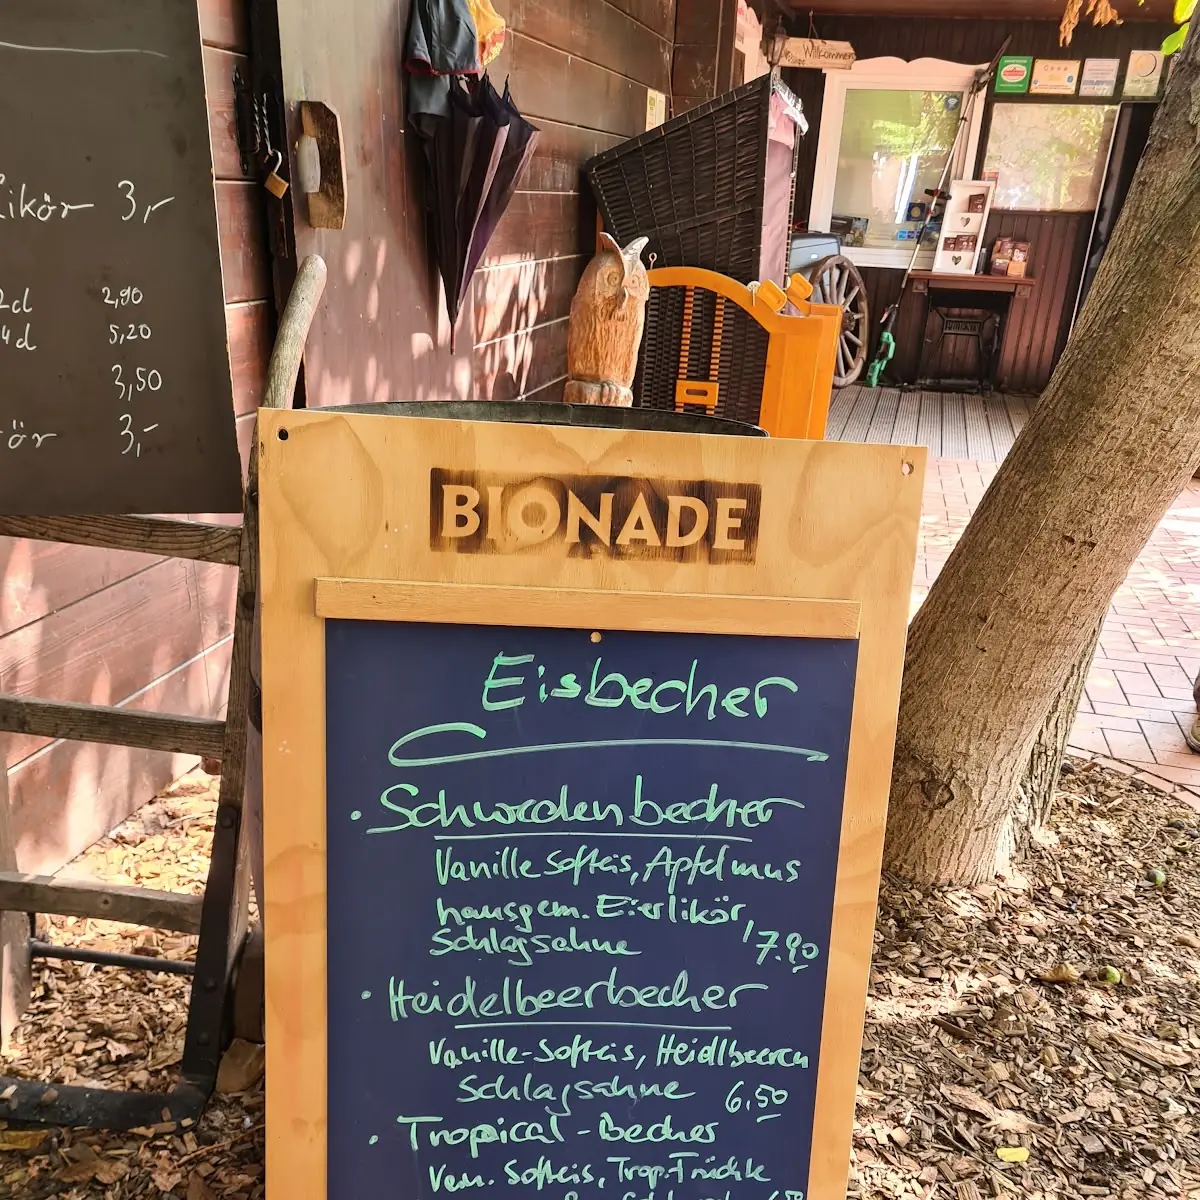 Willkommen
Likör 3,-
2cl 2,90
4cl 5,20
3,50
ör 3,-
BIONADE
Eisbecher
• Schwedenbecher
Vanille Softeis, Apfelmus
hausgem. Eierlikör,
Schlagsahne 7.90
• Heidelbeerbecher
Vanille-Softeis, Heidlbeeren
Schlagsahne 6,50
• Tropical-Becher
Van. Softeis, Trop. Früchte